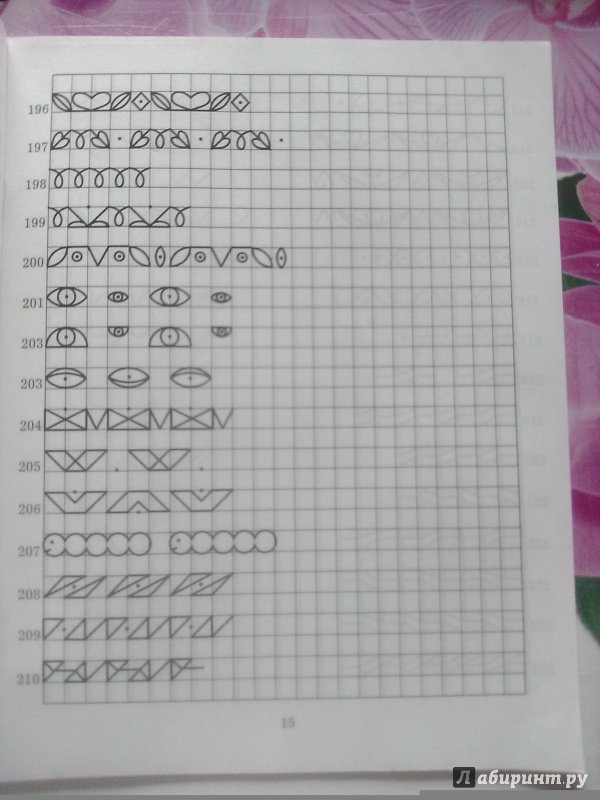 196
197
198
199
200
201
203
203
204
205
206
207
208
209
210
15
Лабиринт.ру